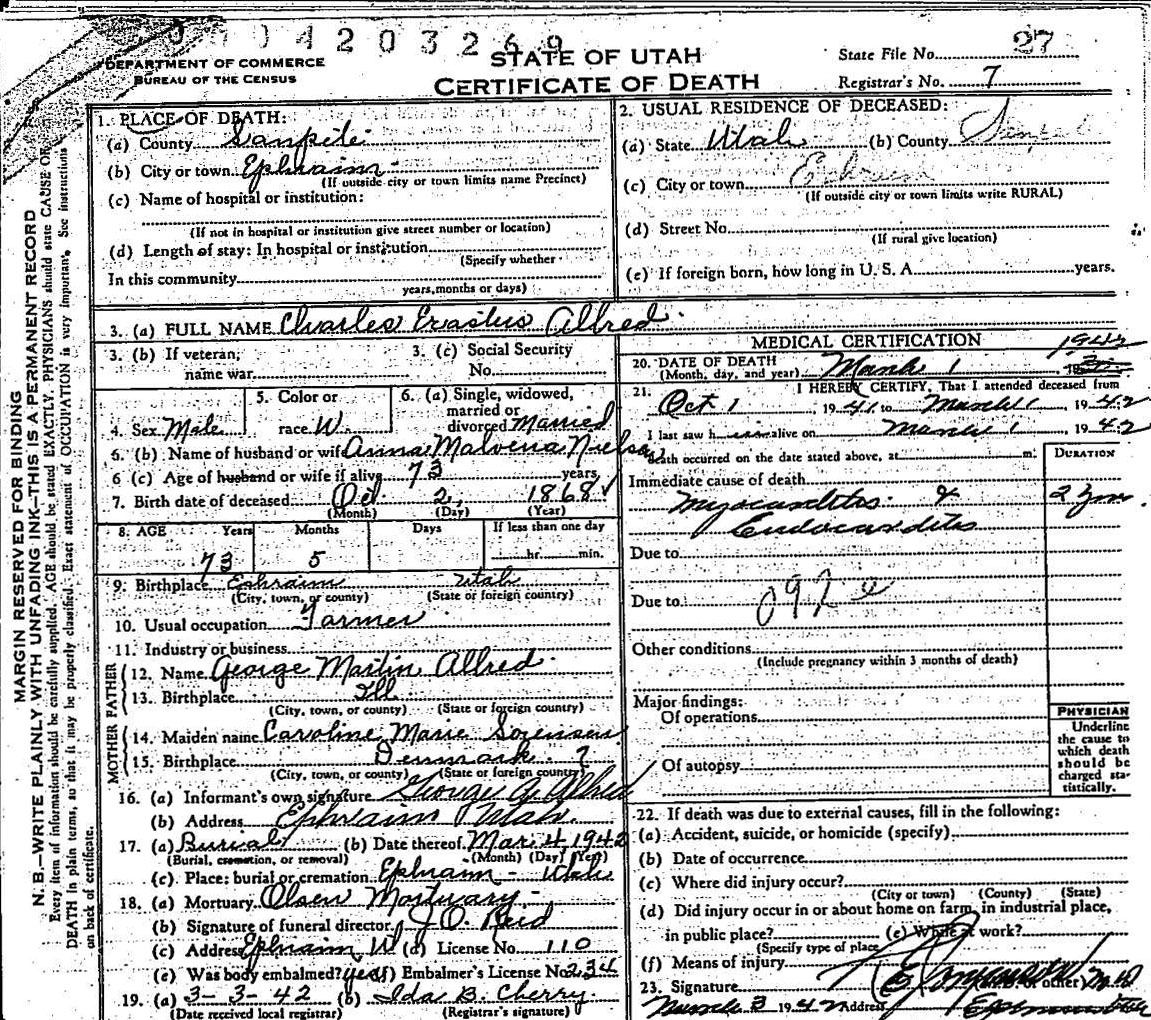 0004203269
DEPARTMENT OF COMMERCE
BUREAU OF THE CENSUS
STATE OF UTAH
CERTIFICATE OF DEATH
State File No. 27
Registrar's No. 7
MARGIN RESERVED FOR BINDING
N. B.—WRITE PLAINLY WITH UNFADING INK—THIS IS A PERMANENT RECORD
Every item of information should be carefully supplied. AGE should be stated EXACTLY. PHYSICIANS should state CAUSE OF
DEATH in plain terms, so that it may be properly classified. Exact statement of OCCUPATION is very important. See instructions
on back of certificate.
1. PLACE OF DEATH:
(a) County Sanpete
(b) City or town Ephraim
(If outside city or town limits name Precinct)
(c) Name of hospital or institution:
(If not in hospital or institution give street number or location)
(d) Length of stay: In hospital or institution
(Specify whether
In this community
years, months or days)
2. USUAL RESIDENCE OF DECEASED:
(a) State Utah (b) County
(c) City or town Ephraim
(If outside city or town limits write RURAL)
(d) Street No.
(If rural give location)
(e) If foreign born, how long in U. S. A. years.
3. (a) FULL NAME Charles Erastus Allred
3. (b) If veteran, name war
3. (c) Social Security No.
4. Sex Male
5. Color or race W.
6. (a) Single, widowed, married or divorced Married
6. (b) Name of husband or wife Anna Malvena Nielson
6 (c) Age of husband or wife if alive 73 years
7. Birth date of deceased Oct. 2, 1868
(Month) (Day) (Year)
8. AGE Years Months Days If less than one day
73 5 hr. min.
9. Birthplace Ephraim Utah
(City, town, or county) (State or foreign country)
10. Usual occupation Farmer
11. Industry or business
FATHER
12. Name George Martin Allred
13. Birthplace Ill
(City, town, or county) (State or foreign country)
MOTHER
14. Maiden name Caroline Marie Sorensen
15. Birthplace Denmark ?
(City, town, or county) (State or foreign country)
16. (a) Informant's own signature George A. Allred
(b) Address Ephraim Utah.
17. (a) Burial (b) Date thereof Mar. 4 1942
(Burial, cremation, or removal) (Month) (Day) (Year)
(c) Place: burial or cremation Ephraim - Utah
18. (a) Mortuary Olsen Mortuary
(b) Signature of funeral director J. O. Reid
(c) Address Ephraim U (d) License No. 110
(e) Was body embalmed? yes (f) Embalmer's License No. 234
19. (a) 3-3-42 (b) Ida B. Cherry.
(Date received local registrar) (Registrar's signature)
MEDICAL CERTIFICATION
20. DATE OF DEATH March 1 1942
(Month, day, and year)
21. I HEREBY CERTIFY, That I attended deceased from
Oct 1, 1941 to March 1, 1942
I last saw h im alive on March 1, 1942
death occurred on the date stated above, at m.
DURATION
Immediate cause of death
Myocarditis & 2 yrs.
Endocarditis
Due to
Due to
Other conditions
(Include pregnancy within 3 months of death)
Major findings:
Of operations
Of autopsy
PHYSICIAN
Underline the cause to which death should be charged statistically.
22. If death was due to external causes, fill in the following:
(a) Accident, suicide, or homicide (specify)
(b) Date of occurrence
(c) Where did injury occur?
(City or town) (County) (State)
(d) Did injury occur in or about home on farm, in industrial place,
in public place? (e) While at work?
(Specify type of place
(f) Means of injury
23. Signature
March 3 1942 Address Ephraim Utah